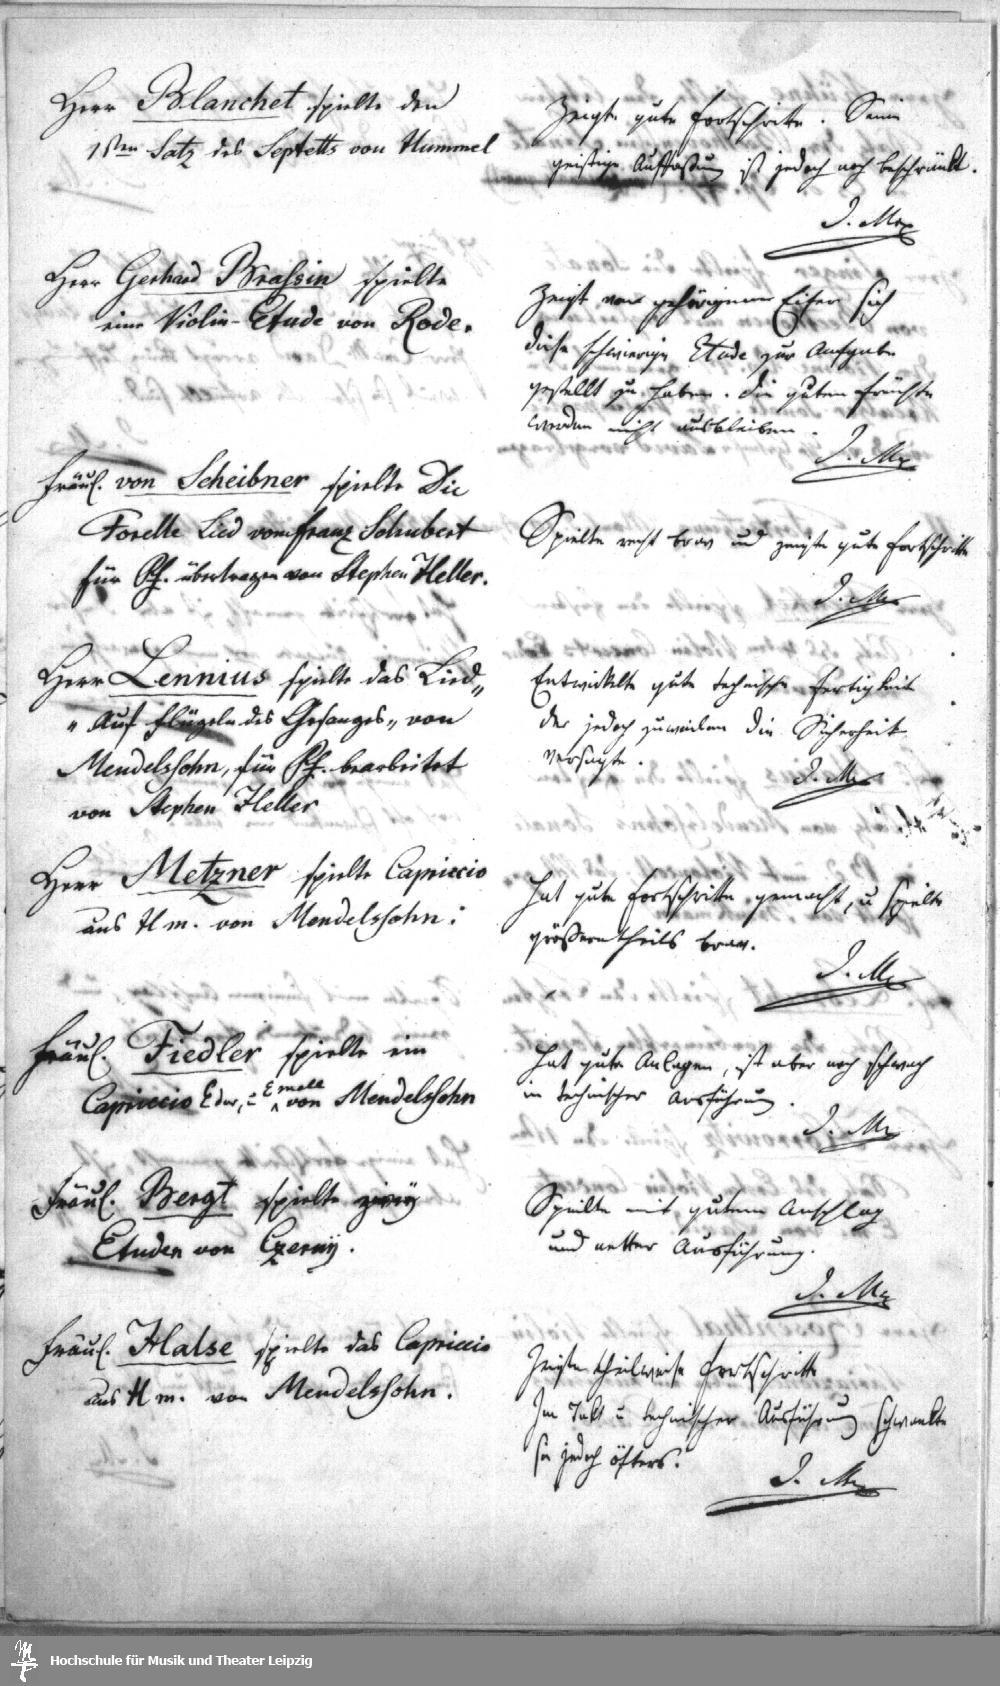 Herr Blanchet spielte den
1sten Satz des Septetts von Hummel
Zeigte gute Fortschritte. Seine
geistige Auffassung ist jedoch noch beschränkt.
I. M
Herr Gerhard Brassin spielte
eine Violin-Etude von Rode.
Zeigt von gehörigem Eifer sich
diese schwierige Etude zur Aufgabe
gestellt zu haben. Die guten Früchte
werden nicht ausbleiben.
I. M
Fräul. von Scheibner spielte Die
Forelle Lied von Franz Schubert
für Pf. übertragen von Stephen Heller.
Spielte recht brav und zeigte gute Fortschritte
I. M
Herr Lennius spielte das Lied„
„Auf Flügeln des Gesanges„ von
Mendelssohn, für Pf. bearbeitet
von Stephen Heller
Entwickelte gute technische Fertigkeit
der jedoch zuweilen die Sicherheit
versagte.
I. M
Herr Metzner spielte Capriccio
aus H m. von Mendelssohn.
Hat gute Fortschritte gemacht, u spielte
größerentheils brav.
I. M
Fräul. Fiedler spielte ein
Capriccio E dur, E moll von Mendelssohn
Hat gute Anlagen, ist aber noch schwach
in technischer Ausführung.
I. M
Fräul. Bergt spielte zwey
Etuden von Czerny.
Spielte mit gutem Anschlag
und netter Ausführung.
I. M
Fräul. Halse spielte das Capriccio
aus H m. von Mendelssohn.
Zeigte theilweise Fortschritte
Im Takt u technischer Ausführung schwankte
sie jedoch öfters.
I. M
Hochschule für Musik und Theater Leipzig